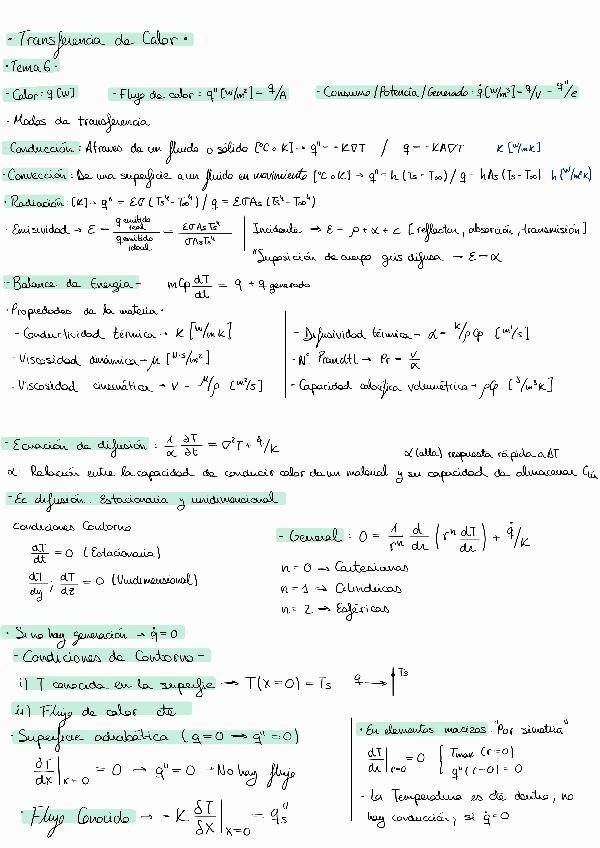 - Transferencia de Calor •
• Tema 6 •
- Calor: q [W] - Flujo de calor: q'' [W/m²] - q/A - Consumo / Potencia / Generado: q̇ [W/m³] - q/V - q''/e
• Modos de transferencia
Conducción: A traves de un fluido o sólido [°C o K] → q'' = -K∇T / q = -KA∇T K [W/mK]
- Convección: De una superficie a un fluido en movimiento [°C o K] → q'' = h (Ts - T∞) / q = hAs (Ts - T∞) h (W/m²K)
• Radiación: [K] → q'' = εσ (Ts⁴ - T∞⁴) / q = εσAs (Ts⁴ - T∞⁴)
• Emisividad → ε = q emitido real / q emitido ideal = εσAsTs⁴ / σAsTs⁴
Incidente → ε = ρ + α + τ [reflectar, absorción, transmisión]
"Suposición de cuerpo gris difusa → ε = α
- Balance de Energía - mCp dT/dt = q + q generado
• Propiedades de la materia •
- Conductividad térmica → K [W/mK]
- Viscosidad dinámica → μ [N·s/m²]
- Viscosidad cinemática → ν - μ/ρ [m²/s]
- Difusividad térmica - α = K/ρCp [m²/s]
- Nº Prandtl → Pr = ν/α
- Capacidad calorífica volumétrica → ρCp [J/m³K]
- Ecuación de difusión: 1/α ∂T/∂t = ∇²T + q̇/K
α (alta) respuesta rápida a ΔT
α: Relación entre la capacidad de conducir calor de un material y su capacidad de almacenar
- Ec difusión. Estacionaria y unidimensional
Condiciones Contorno
dT/dt = 0 (Estacionaria)
dT/dy ; dT/dz = 0 (Unidimensional)
- General: 0 = 1/rⁿ d/dr (rⁿ dT/dr) + q̇/K
n = 0 → Cartesianas
n = 1 → Cilindricas
n = 2 → Esféricas
• Si no hay generación → q̇ = 0
- Condiciones de Contorno -
i) T conocida en la superficie → T(x=0) = Ts q → Ts
ii) Flujo de calor cte
• Superficie adiabática (q=0 → q''=0)
∂T/∂x |x=0 = 0 → q'' = 0 → No hay flujo
• Flujo Conocido → -K ∂T/∂x |x=0 = qs''
• En elementos macizos "Por simetría"
dT/dr |r=0 = 0 { Tmax (r=0)
q'' (r=0) = 0
- La Temperatura es cte dentro, no
hay conducción, si q̇=0